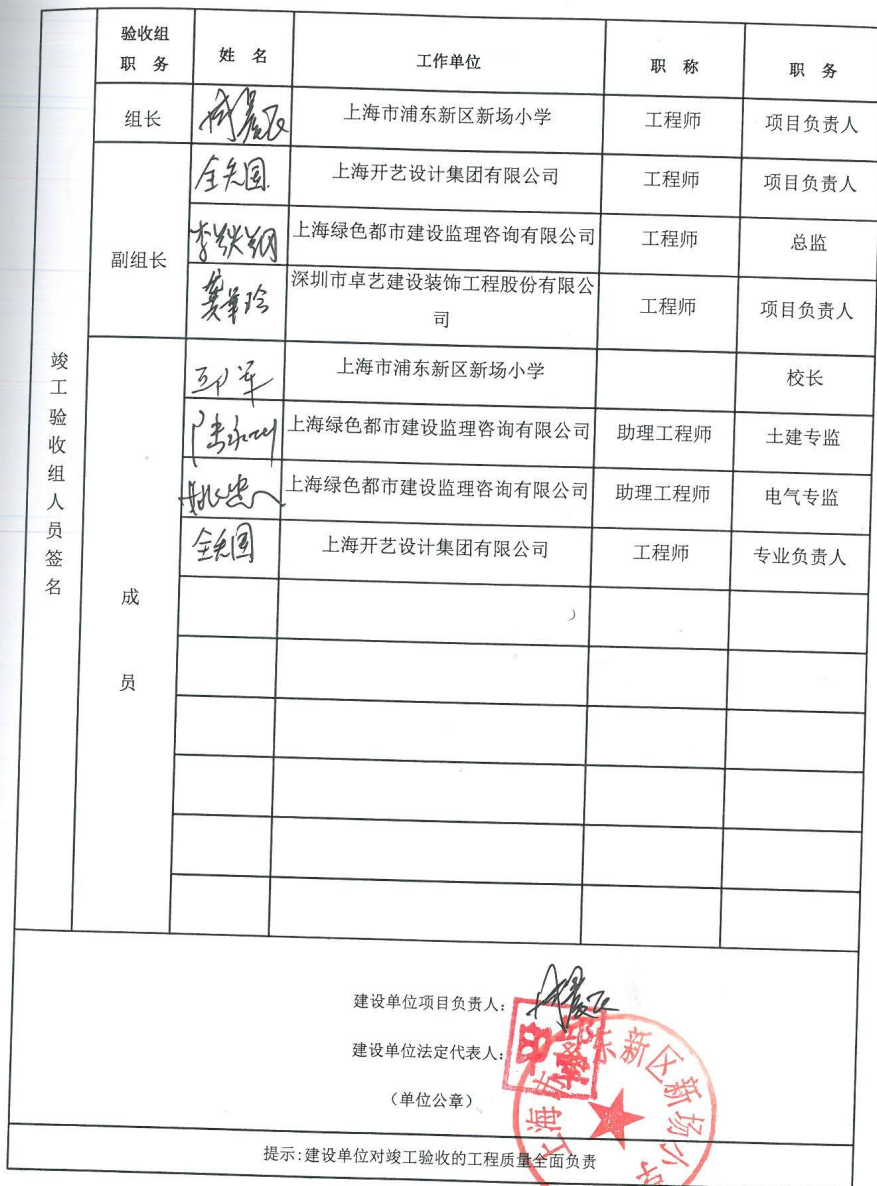 验收组
职 务
姓 名
工作单位
职 称
职 务
组长
上海市浦东新区新场小学
工程师
项目负责人
上海开艺设计集团有限公司
工程师
项目负责人
副组长
上海绿色都市建设监理咨询有限公司
工程师
总监
深圳市卓艺建设装饰工程股份有限公
司
工程师
项目负责人
竣工验收组人员签名
成员
上海市浦东新区新场小学
校长
上海绿色都市建设监理咨询有限公司
助理工程师
土建专监
上海绿色都市建设监理咨询有限公司
助理工程师
电气专监
上海开艺设计集团有限公司
工程师
专业负责人
建设单位项目负责人:
建设单位法定代表人:
(单位公章)
上海市浦东新区新场小学
提示:建设单位对竣工验收的工程质量全面负责